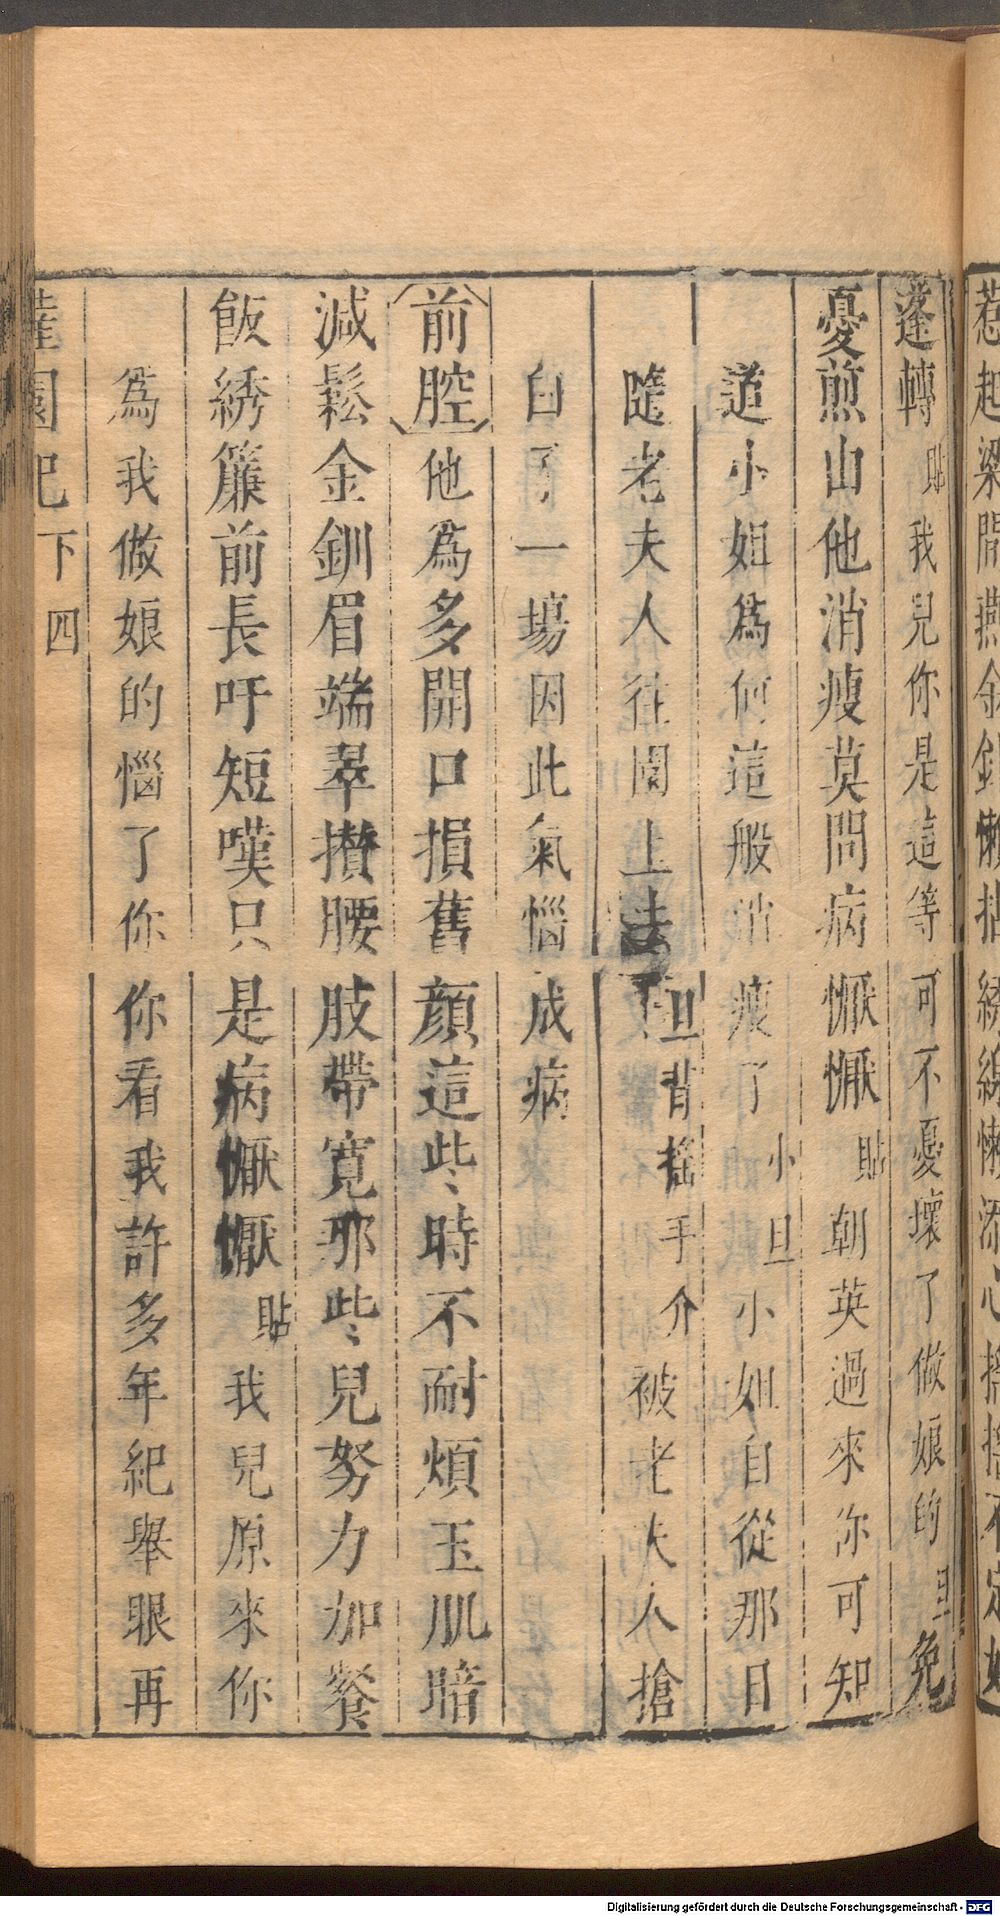 惹起梁間燕金針懶拈綉線慵添心
蓬轉貼我兒你是這等可不憂壞了做娘的旦免
憂煎山他消瘦莫問病懨懨貼朝英過來你可知
道小姐爲何這般消瘦了小旦小姐自從那日
隨老夫人往園上去旦背搖手介被老夫人搶
白了一塲因此氣惱成病
前腔他爲多開口損舊顏這些時不耐煩玉肌暗
減鬆金釧眉端翠攢腰肢帶寬那些兒努力加餐
飯綉簾前長吁短嘆只是病懨懨貼我兒原來你
爲我做娘的惱了你你看我許多年紀舉眼再
園記
下
四
Digitalisierung gefördert durch die Deutsche Forschungsgemeinschaft - DFG